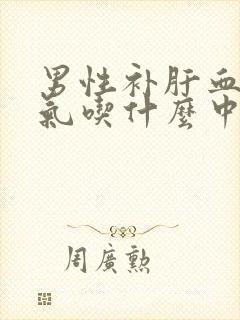 男性补肝血
氣喫什麼中
周廣勲